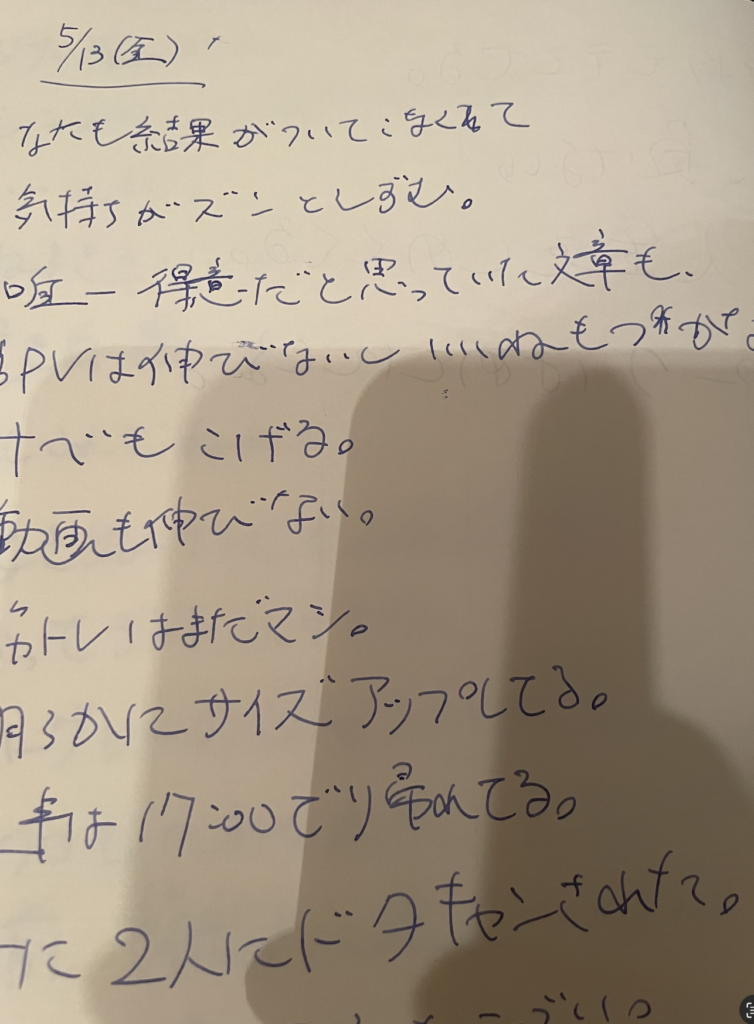 5/13(金)
なんも結果がついてこなくて
気持ちがズンとしずむ。
唯一得意だと思っていた文章も、
PVは伸びないし いいねもつかな
すべもこげる。
動画も伸びない。
筋トレはまだマシ。
明らかにサイズアップしてる。
事は17:00で帰れてる。
に2人にドタキャンされた。